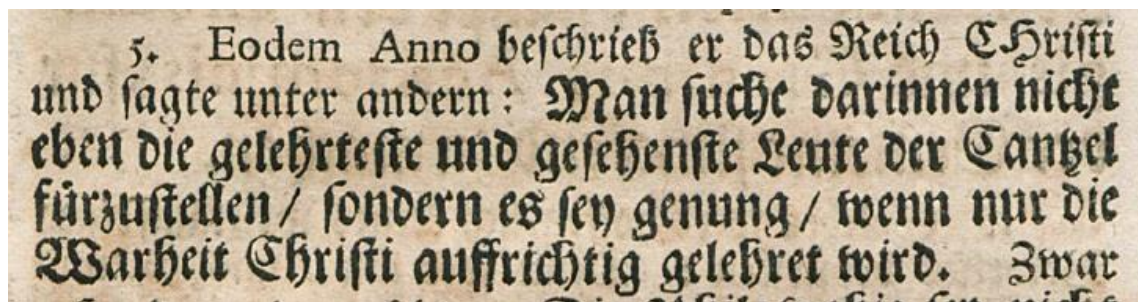 5. Eodem Anno beschrieb er das Reich CHristi
und sagte unter andern: Man suche darinnen nicht
eben die gelehrteste und gesehenste Leute der Cantzel
fürzustellen / sondern es sey genung / wenn nur die
Warheit Christi auffrichtig gelehret wird. Zwar